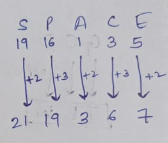 S P A C E
19 16 1 3 5
+2 +3 +2 +3 +2
21 19 3 6 7